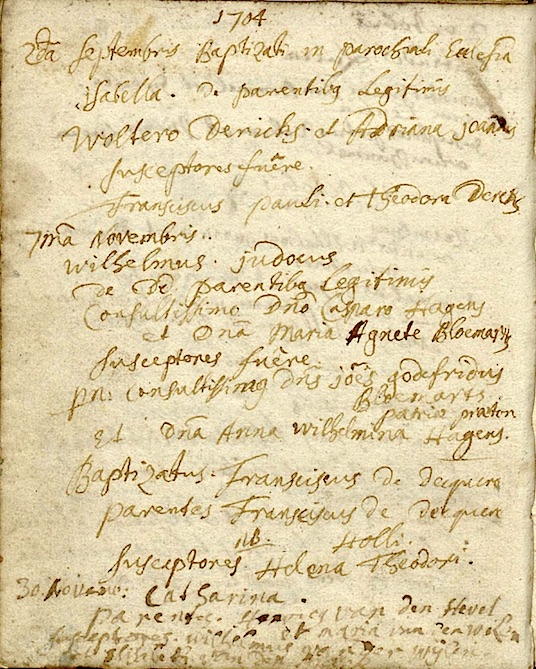 1704
2da Septembris Baptizati in parochiali Ecclesia
isabella. De parentibq Legitimis
Woltero Dericks et Adriana joannis
susceptores fuere.
Franciscus pauli. et Theodora Dericks
7ma Novembris.
Wilhelmus. judocus
De parentibq Legitimis
Consultissimo Dno Casparo Hagens
et Dna Maria Agnete Bloemarts
susceptores fuere.
pn: Consultissimq Dns joes godefridus
Bloemarts
patriæ prætor
et Dna Anna Wilhelmina Hagens.
Baptizatus. Franciscus de decquere
parentes Franciscus de decquere
NB. Holli.
susceptores Helena Theodori.
30. Catharina.
parentes van den Hevel
et maria van
susceptores
van der